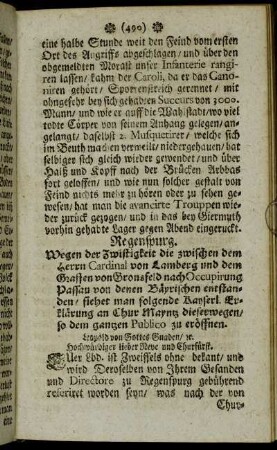 ✽ (490) ✽
eine halbe Stunde weit den Feind vom ersten
Ort des Angriffs abgeschlagen / und über den
obgemeldten Morast unser Infanterie rangi-
ren lassen / kahm der Caroli, da er das Cano-
niren gehört / Sporrenstreich gerennet / mit
ohngefehr bey sich gehabten Succurs von 3000.
Mann / und wie er auff die Wahlstadt / wo viel
todte Cörper von seinem Anhang gelegen / an-
gelangt / daselbst 2. Musquetirer / welche sich
im Beuth machen verweilt / niedergehauen / hat
selbiger sich gleich wieder gewendet / und über
Halß und Kopff nach der Brücken Arbbas
fort geloffen / und wie nun solcher gestalt von
Feind nichts mehr zu hören oder zu sehen ge-
wesen / hat man die avancirte Trouppen wie-
der zurück gezogen / und in das bey Giermuth
vorhin gehabte Lager gegen Abend eingeruckt.
Regenspurg.
Wegen der Zwistigkeit die zwischen dem
Herrn Cardinal von Lamberg und dem
Graffen von Gronsfeld nach Occupirung
Passau von denen Bäyrischen entstan-
den / siehet man folgende Kayserl. Er-
klärung an Chur Mayntz dieserwegen /
so dem gantzen Publico zu eröffnen.
Leopold von Gottes Gnaden / ꝛc.
Hochwürdiger lieber Neve und Churfürst.
Euer Lbd. ist Zweiffels ohne bekant / und
wird Deroselben von Ihrem Gesanden
und Directore zu Regenspurg gebührend
referiret worden seyn / was nach der von
Chur-